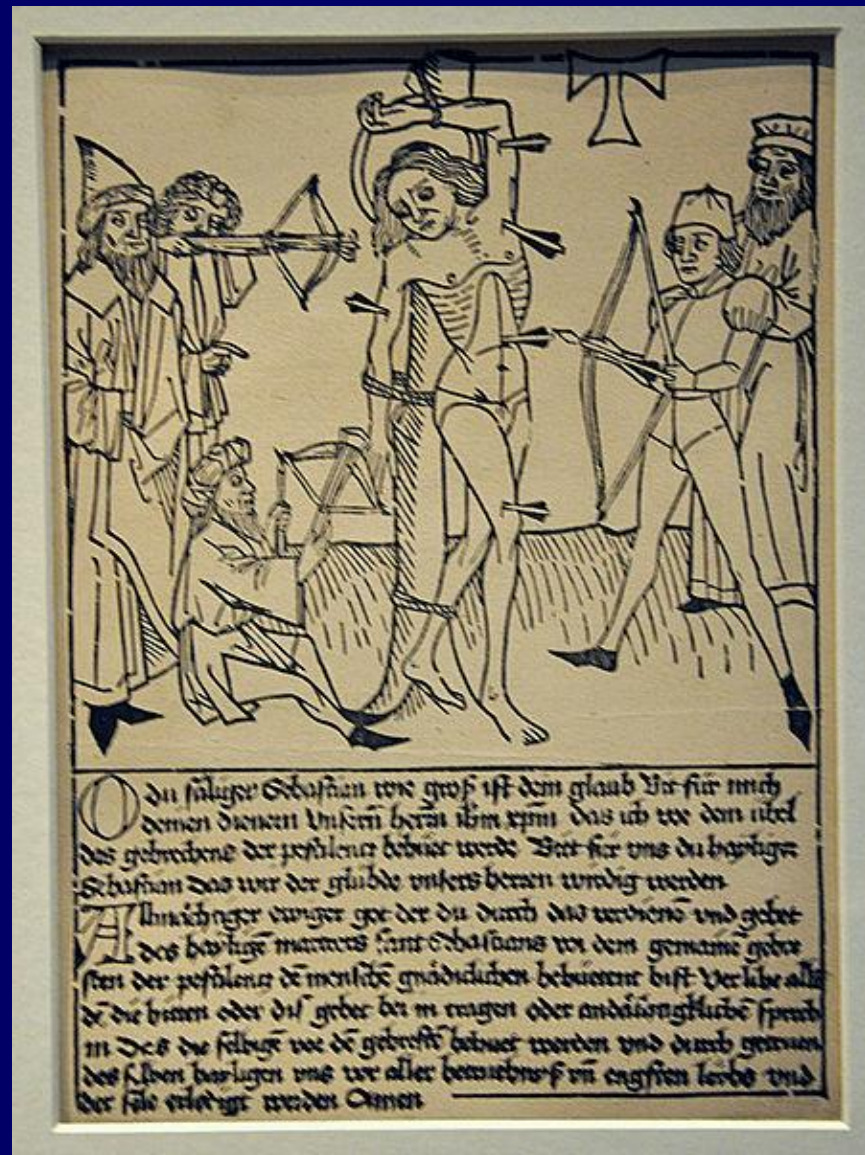 O du säliger Sebastian wie groß ist dein glaub Bit für mich
deinen dienern Unsern herrn ihm xpm das ich vor dem übel
des gebrechens der pestilentz behüet werde Bitt für uns du hayliger
Sebastian das wir der glübde unsers herren wirdig werden
Almächtiger ewiger got der du durch das verdienē vnd gebet
des haylige martrers sant Sebastians vor dem gemainē gebre
sten der pestilentz dē menschē gnädiclichen behüetent bist Verlihe alle
dē die bitten oder diß gebet bei in tragen oder andächtigklichē sprech
in Des die selbigē vor dē gebrestē behuet werden vnd durch getruen
des selben hayligen vns vor aller betrüebnuß vn̄ engsten leibs vnd
der sele erledigt werden Amen